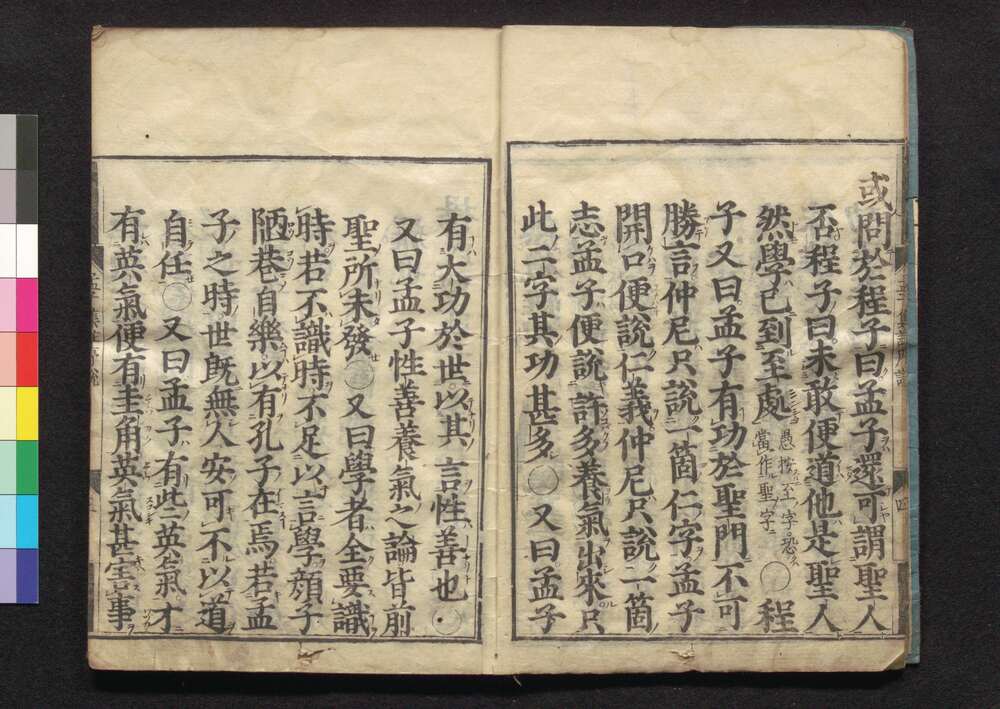 或問於程子曰孟子還可謂聖人
否程子曰未敢便道他是聖人
然學已到至處愚按至字恐當作聖字○程
子又曰孟子有功於聖門不可
勝言仲尼只說一箇仁字孟子
開口便說仁義仲尼只說一箇
志孟子便說許多養氣出來只
此二字其功甚多○又曰孟子
有大功於世以其言性善也○
又曰孟子性善養氣之論皆前
聖所未發○又曰學者全要識
時若不識時不足以言學顔子
陋巷自樂以有孔子在焉若孟
子之時世既無人安可不以道
自任○又曰孟子有些英氣才
有英氣便有圭角英氣甚害事